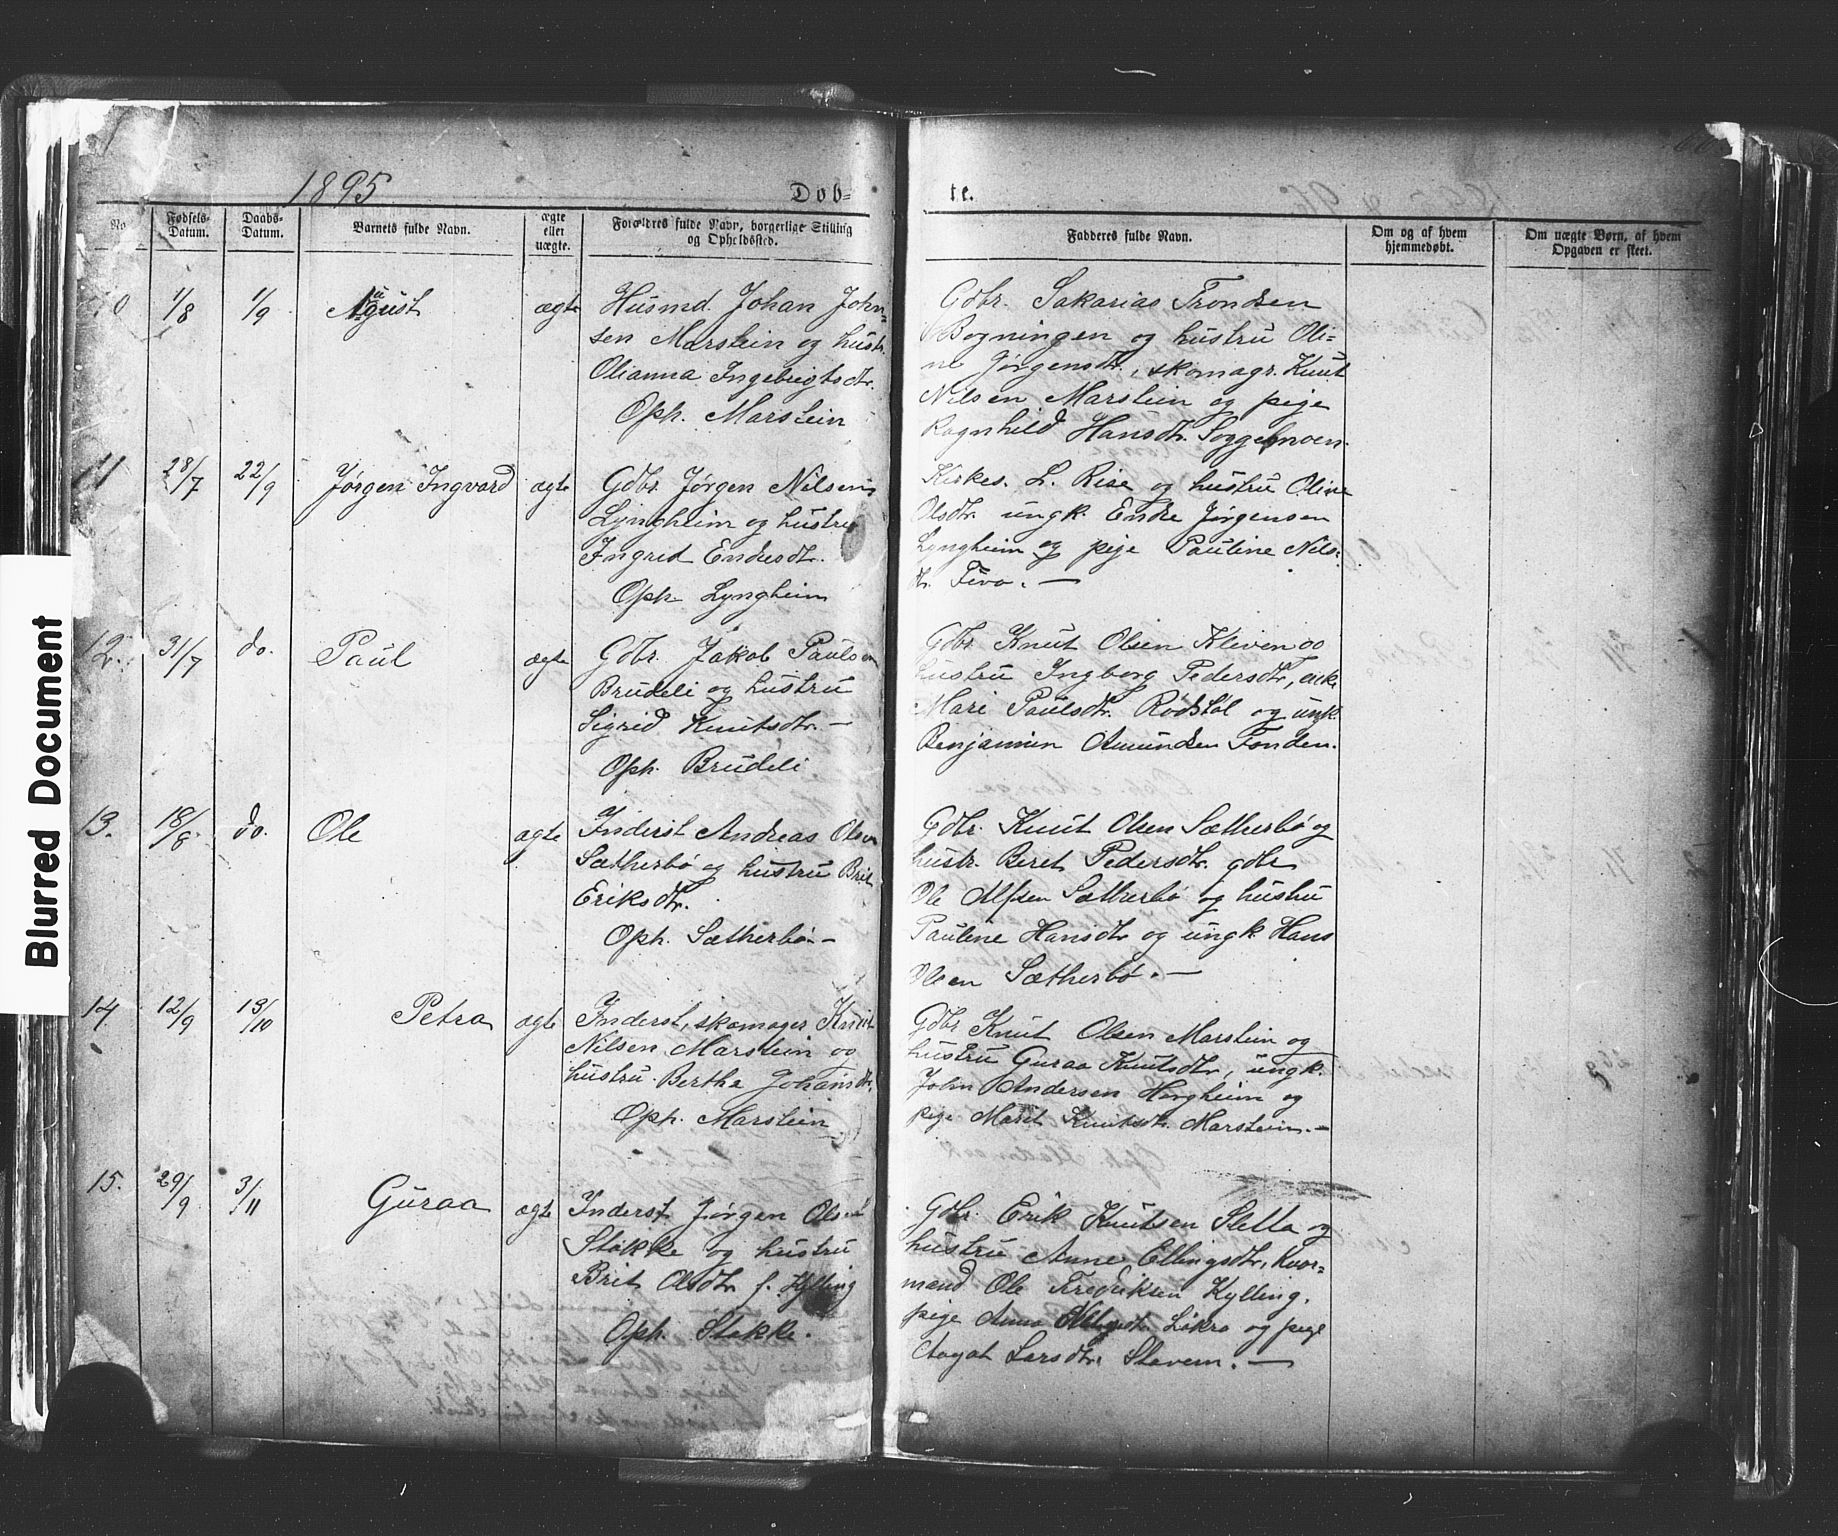 Blurred Document
1895
Døb=
te.
No
Fødsels-
Datum.
Daabs-
Datum.
Barnets fulde Navn.
ægte
eller
uægte.
Forældres fulde Navn, borgerlige Stilling
og Opholdssted.
Fadderes fulde Navn.
Om og af hvem
hjemmedøbt.
Om uægte Børn, af hvem
Opgaven er skeet.
10 1/8 1/9 August ægte
Husmd. Johan John=
sen Marstein og hustr.
Olianna Ingebrigtsdtr.
Oph. Marstein
Gdbr. Sakarias Trondsen
Bogningen og hustru Oli=
ne Jørgensdtr., skomagr. Knut
Nilsen Marstein og pige
Ragnhild Hansdtr. Soggemoen.
11 28/7 22/9 Jørgen Ingvard ægte
Gdbr. Jørgen Nilsen
Lyngheim og hustru
Ingrid Endresdtr.
Oph. Lyngheim
Kirkes. L. Rise og hustru Oline
Olsdtr. ungk. Endre Jørgensen
Lyngheim og pige Pauline Nils=
dtr. Fiva. —
12. 31/7 do. Paul ægte
Gdbr. Jakob Paulsen
Brudeli og hustru
Sigrid Knutsdtr. —
Oph. Brudeli
Gdbr. Knut Olsen Kleven og
hustru Ingborg Pedersdtr, enke
Mari Paulsdtr. Rødstøl og ungk.
Benjamin Amundsen Fonden.
13. 18/8 do. Ole ægte
Inderst Andreas Olsen
Sætherbø og hustru Brit
Eriksdtr.
Oph. Sætherbø. —
Gdbr. Knut Olsen Sætherbø og
hustr. Beret Pedersdtr. gdbr
Ole Alfsen Sætherbø og hustru
Pauline Hansdtr og ungk. Hans
Olsen Sætherbø. —
14. 12/9 13/10 Petra ægte
Inderst, skomager Knut
Nilsen Marstein og
hustru Bertha Johansdtr,
Oph. Marstein
Gdbr Knut Olsen Marstein og
hustru Guraa Knutsdtr, ungk.
John Andersen Horgheim og
pige Marit Knutsdtr. Marstein. —
15. 29/9 3/11 Guraa ægte
Inderst Jørgen Olsen
Stokke og hustru
Brit Olsdtr f. Kylling
Oph. Stokke.
Gdbr. Erik Knutsen Sletta og
hustru Anne Ellingsdtr, Kvor=
mand Ole Fredriksen Kylling,
pige Anna Løkra og pige
Aagot Larsdtr. Stavem. —